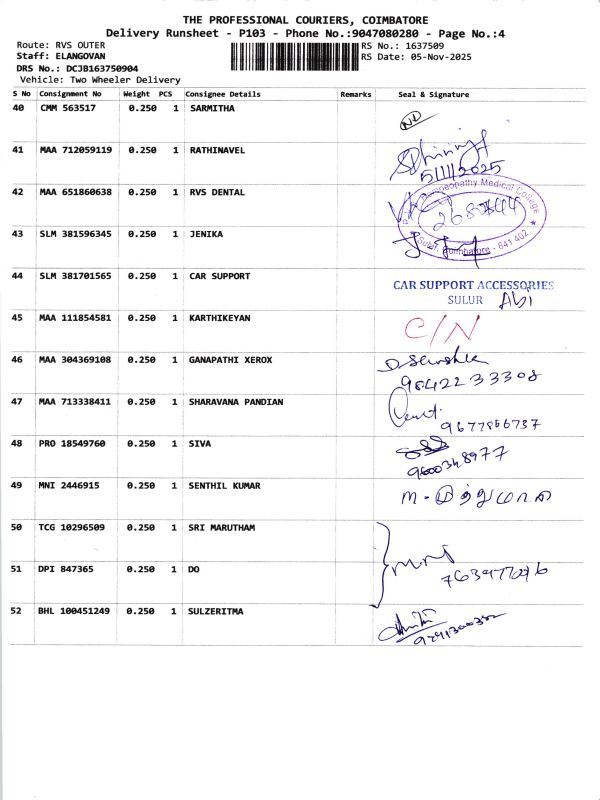 THE PROFESSIONAL COURIERS, COIMBATORE
Delivery Runsheet - P103 - Phone No.:9047080280 - Page No.:4
Route: RVS OUTER
RS No.: 1637509
Staff: ELANGOVAN
RS Date: 05-Nov-2025
DRS No.: DCJB163750904
Vehicle: Two Wheeler Delivery
S No Consignment No Weight PCS Consignee Details Remarks Seal & Signature
40 CMM 563517 0.250 1 SARMITHA
41 MAA 712059119 0.250 1 RATHINAVEL
5/11/2025
42 MAA 651860638 0.250 1 RVS DENTAL
Homoeopathy Medical College
Sulur, Coimbatore - 641 402
43 SLM 381596345 0.250 1 JENIKA
44 SLM 381701565 0.250 1 CAR SUPPORT
CAR SUPPORT ACCESSORIES
SULUR
45 MAA 111854581 0.250 1 KARTHIKEYAN C/N
46 MAA 304369108 0.250 1 GANAPATHI XEROX
9842233308
47 MAA 713338411 0.250 1 SHARAVANA PANDIAN
9677866737
48 PRO 18549760 0.250 1 SIVA
9600348977
49 MNI 2446915 0.250 1 SENTHIL KUMAR
50 TCG 10296509 0.250 1 SRI MARUTHAM
51 DPI 847365 0.250 1 DO
52 BHL 100451249 0.250 1 SULZERITMA